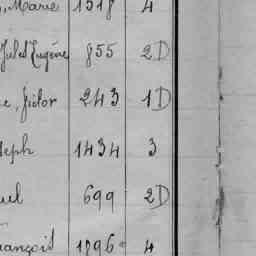 , Marie 1518 4
Jules Eugène 855 2D
e, Victor 243 1D
seph 1434 3
uel 699 2D
rançois 1896 4